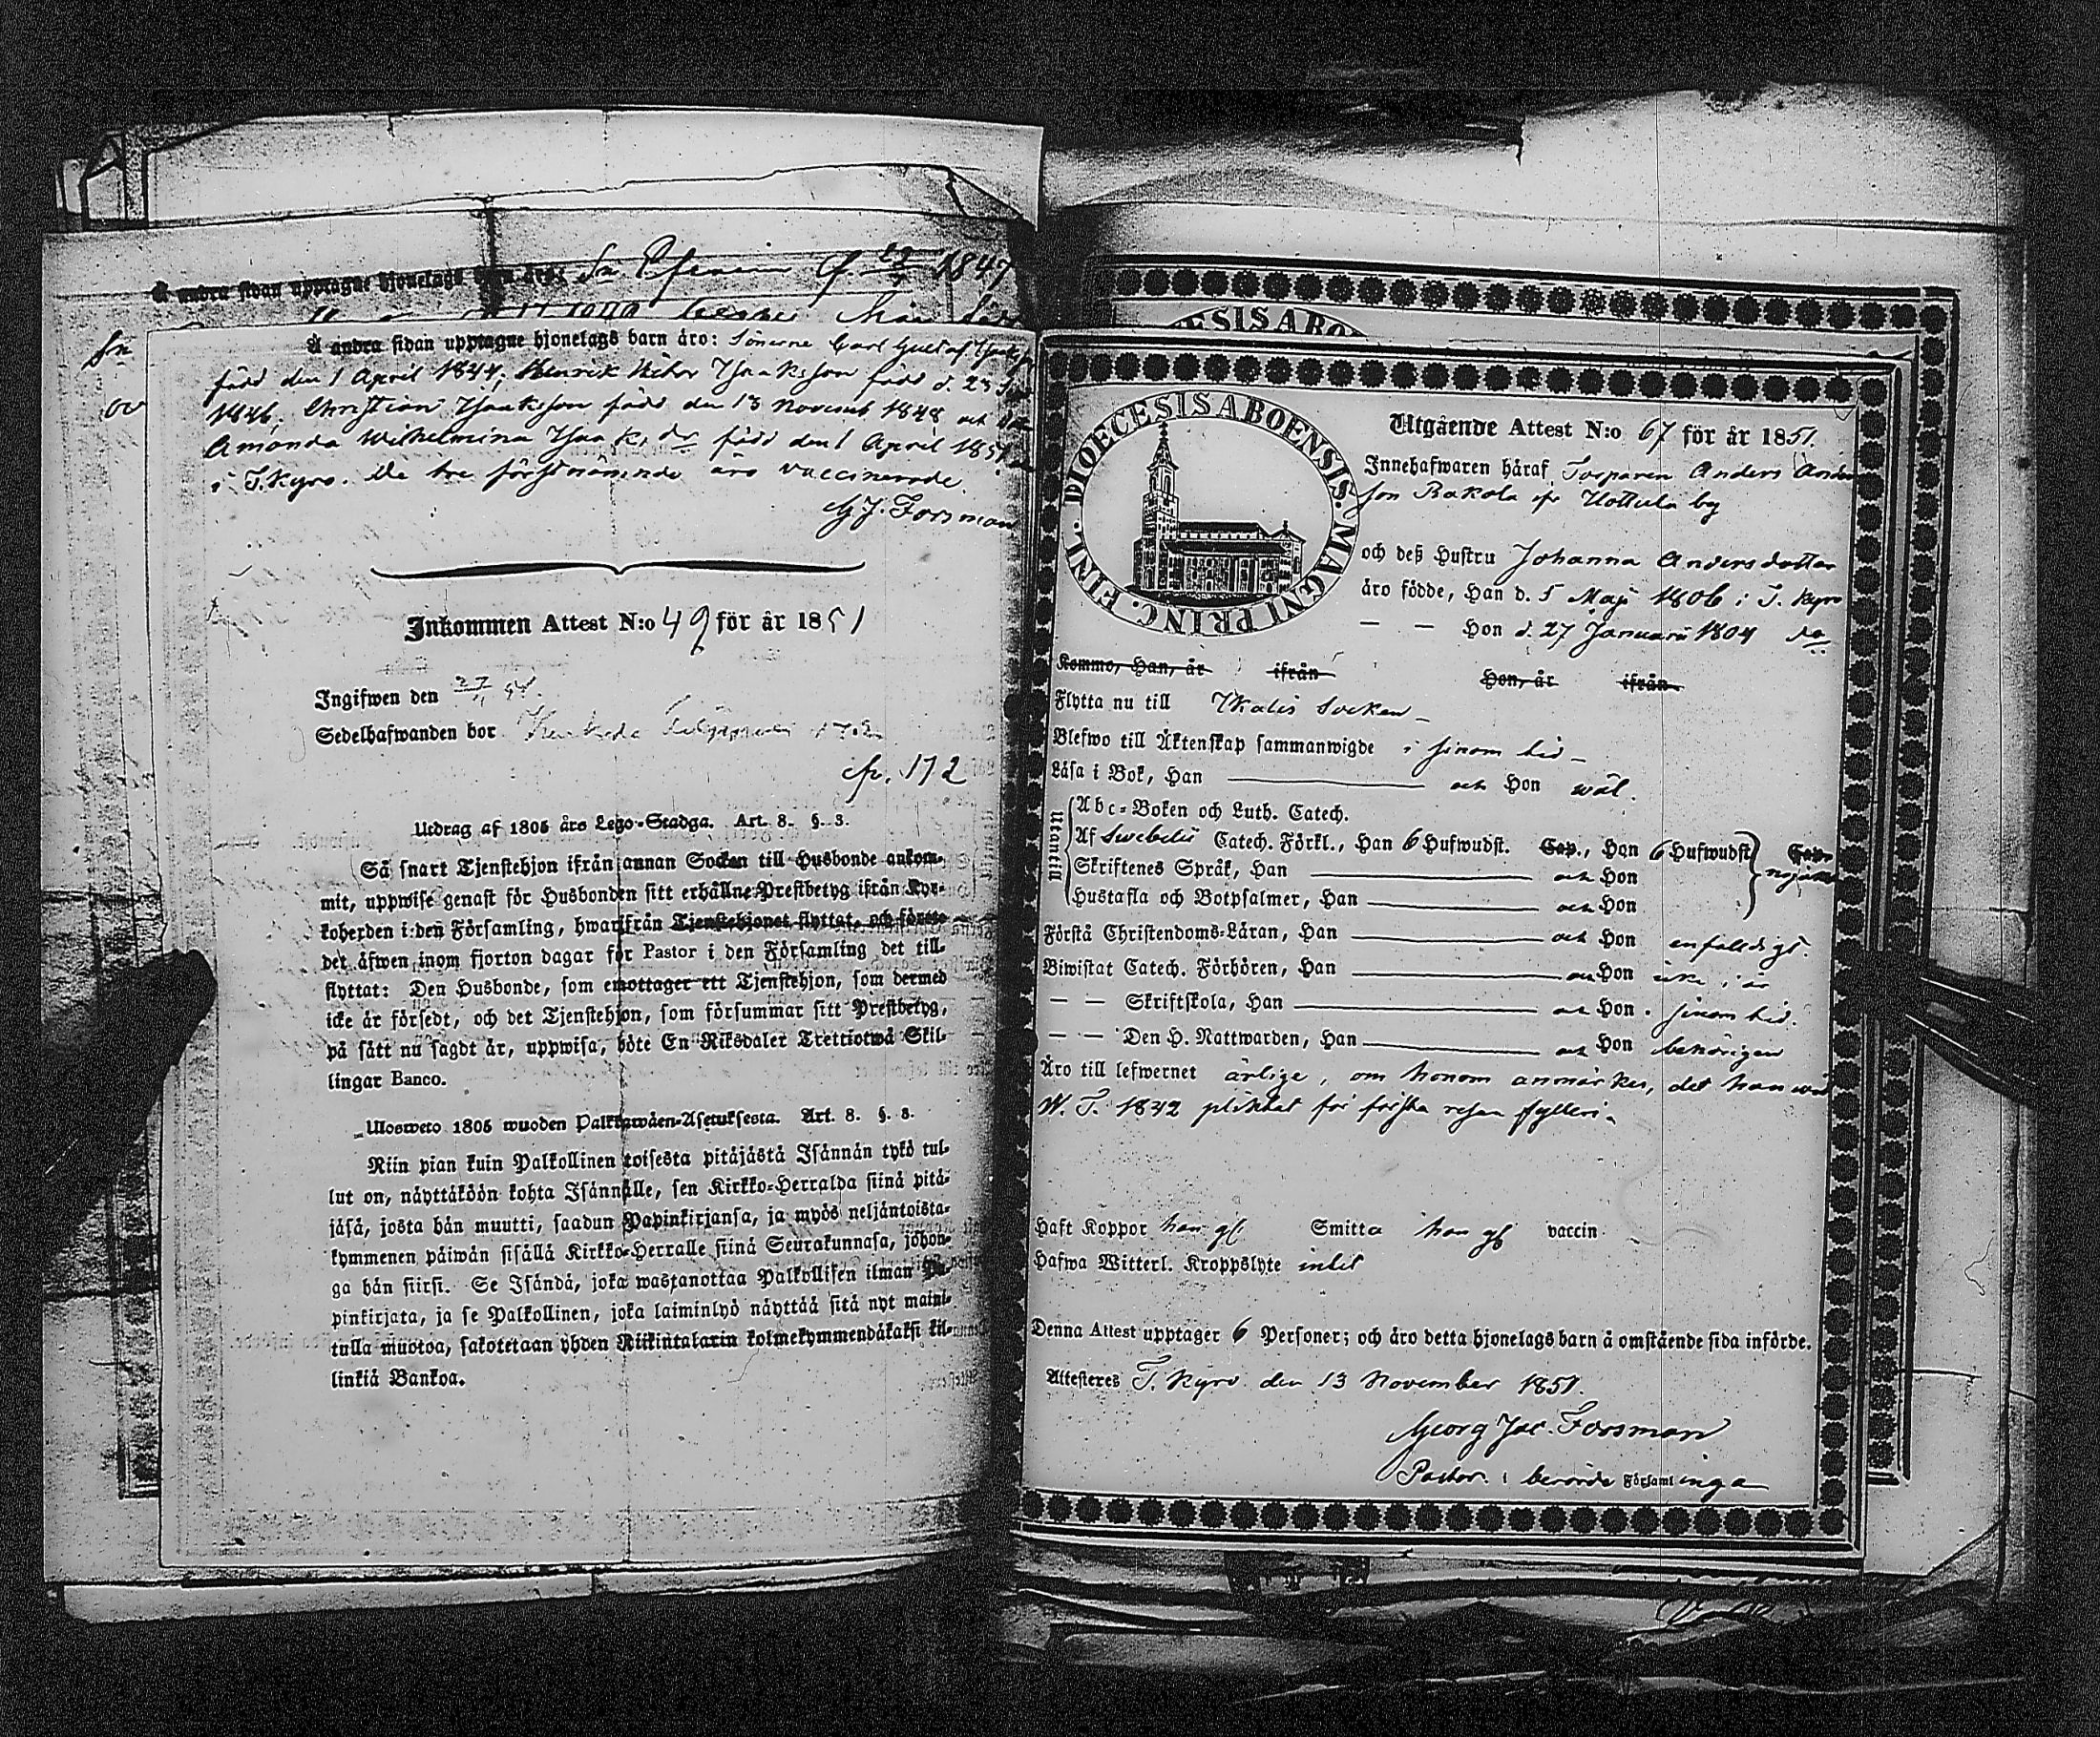 Å andra sidan upptagne hjonelags barn äro: 1847
Å andra sidan upptagne hjonelags barn äro: Sönerne Carl Gustaf
född den 1 April 1844; Henrik Isaksson född d. 23
1846; Christian Isaksson född den 13 Novemb 1848 och
Amanda Wilhelmina Isaks dr född den 1 April 1851
i T.kyro. De tre förstnämnde äro vaccinerade.
G J. Forsman
Inkommen Attest N:o 49 för år 1851
Ingifwen den 27/11 51.
Sedelhafwanden bor
fr. 172
Utdrag af 1805 års Lego-Stadga. Art. 8. §. 3.
Så snart Tjenstehjon ifrån annan Socken till Husbonde ankom-
mit, uppwise genast för Husbonden sitt erhållne Prestbetyg ifrån Kyr-
koherden i den Församling, hwarifrån Tjenstehjonet flyttat, och förete
det äfwen inom fjorton dagar för Pastor i den Församling det till-
flyttat: Den Husbonde, som emottager ett Tjenstehjon, som dermed
icke är försedt, och det Tjenstehjon, som försummar sitt Prestbetyg,
på sätt nu sagdt är, uppwisa, böte En Riksdaler Trettiotwå Skil-
lingar Banco.
Ulosweto 1805 wuoden Palkkawäen-Asetuksesta. Art. 8. §. 3.
Niin pian kuin Palkollinen toisesta pitäjästä Isännän tykö tul-
lut on, näyttäköön kohta Isännälle, sen Kirkko-Herralda siinä pitä-
jäsä, josta hän muutti, saadun Papinkirjansa, ja myös neljäntoista-
kymmenen päiwän sisällä Kirkko-Herralle siinä Seurakunnasa, johon-
ga hän siirsi. Se Isändä, joka wastanottaa Palkollisen ilman Pa-
pinkirjata, ja se Palkollinen, joka laiminlyö näyttää sitä nyt maini-
tulla muotoa, sakotetaan yhden Riikintalarin kolmekymmendäkaksi kil-
linkiä Bankoa.
DIOECESIS ABOENSIS. MAGNI PRINC. FINL.
Utgående Attest N:o 67 för år 1851.
Innehafwaren häraf Torparen Anders Anders
son Rakola fr Uottula by
och deß Hustru Johanna Andersdotter
äro födde, Han d. 5 Maji 1806 i T. kyro
— — Hon d. 27 Januarii 1804 do
Komma, Han, år ifrån Hon, år ifrån
Flytta nu till Ikalis Socken
Blefwo till Äktenskap sammanwigde i sinom tid
Läsa i Bok, Han och Hon wäl.
Utantill
Abc-Boken och Luth. Catech.
Af Swebelii Catech. Förkl., Han 6 Hufwudst. Cap., Hon 6 Hufwudst. Cap.
Skriftenes Språk, Han och Hon
Hustafla och Botpsalmer, Han och Hon
Förstå Christendoms-Läran, Han och Hon enfaldigt.
Biwistat Catech. Förhören, Han och Hon
— — Skriftskola, Han och Hon i sinom tid.
— — Den H. Nattwarden, Han och Hon behörigen
Äro till lefwernet ärlige, om honom anmärkes, det han wid
W. T. 1842 pliktat för första resan fylleri
Haft Koppor han gl Smitta hon gl vaccin
Hafwa Witterl. Kroppslyte intet
Denna Attest upptager 6 Personer; och äro detta hjonelags barn å omstående sida införde.
Attesteres T. Kyro den 13 November 1851.
Georg Jac. Forsman
Pastor i berörde Församlinga